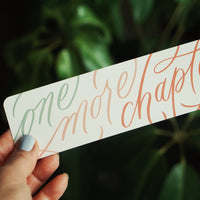 one more chapt